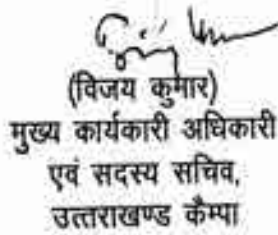 (विजय कुमार)
मुख्य कार्यकारी अधिकारी
एवं सदस्य सचिव,
उत्तराखण्ड कैम्पा